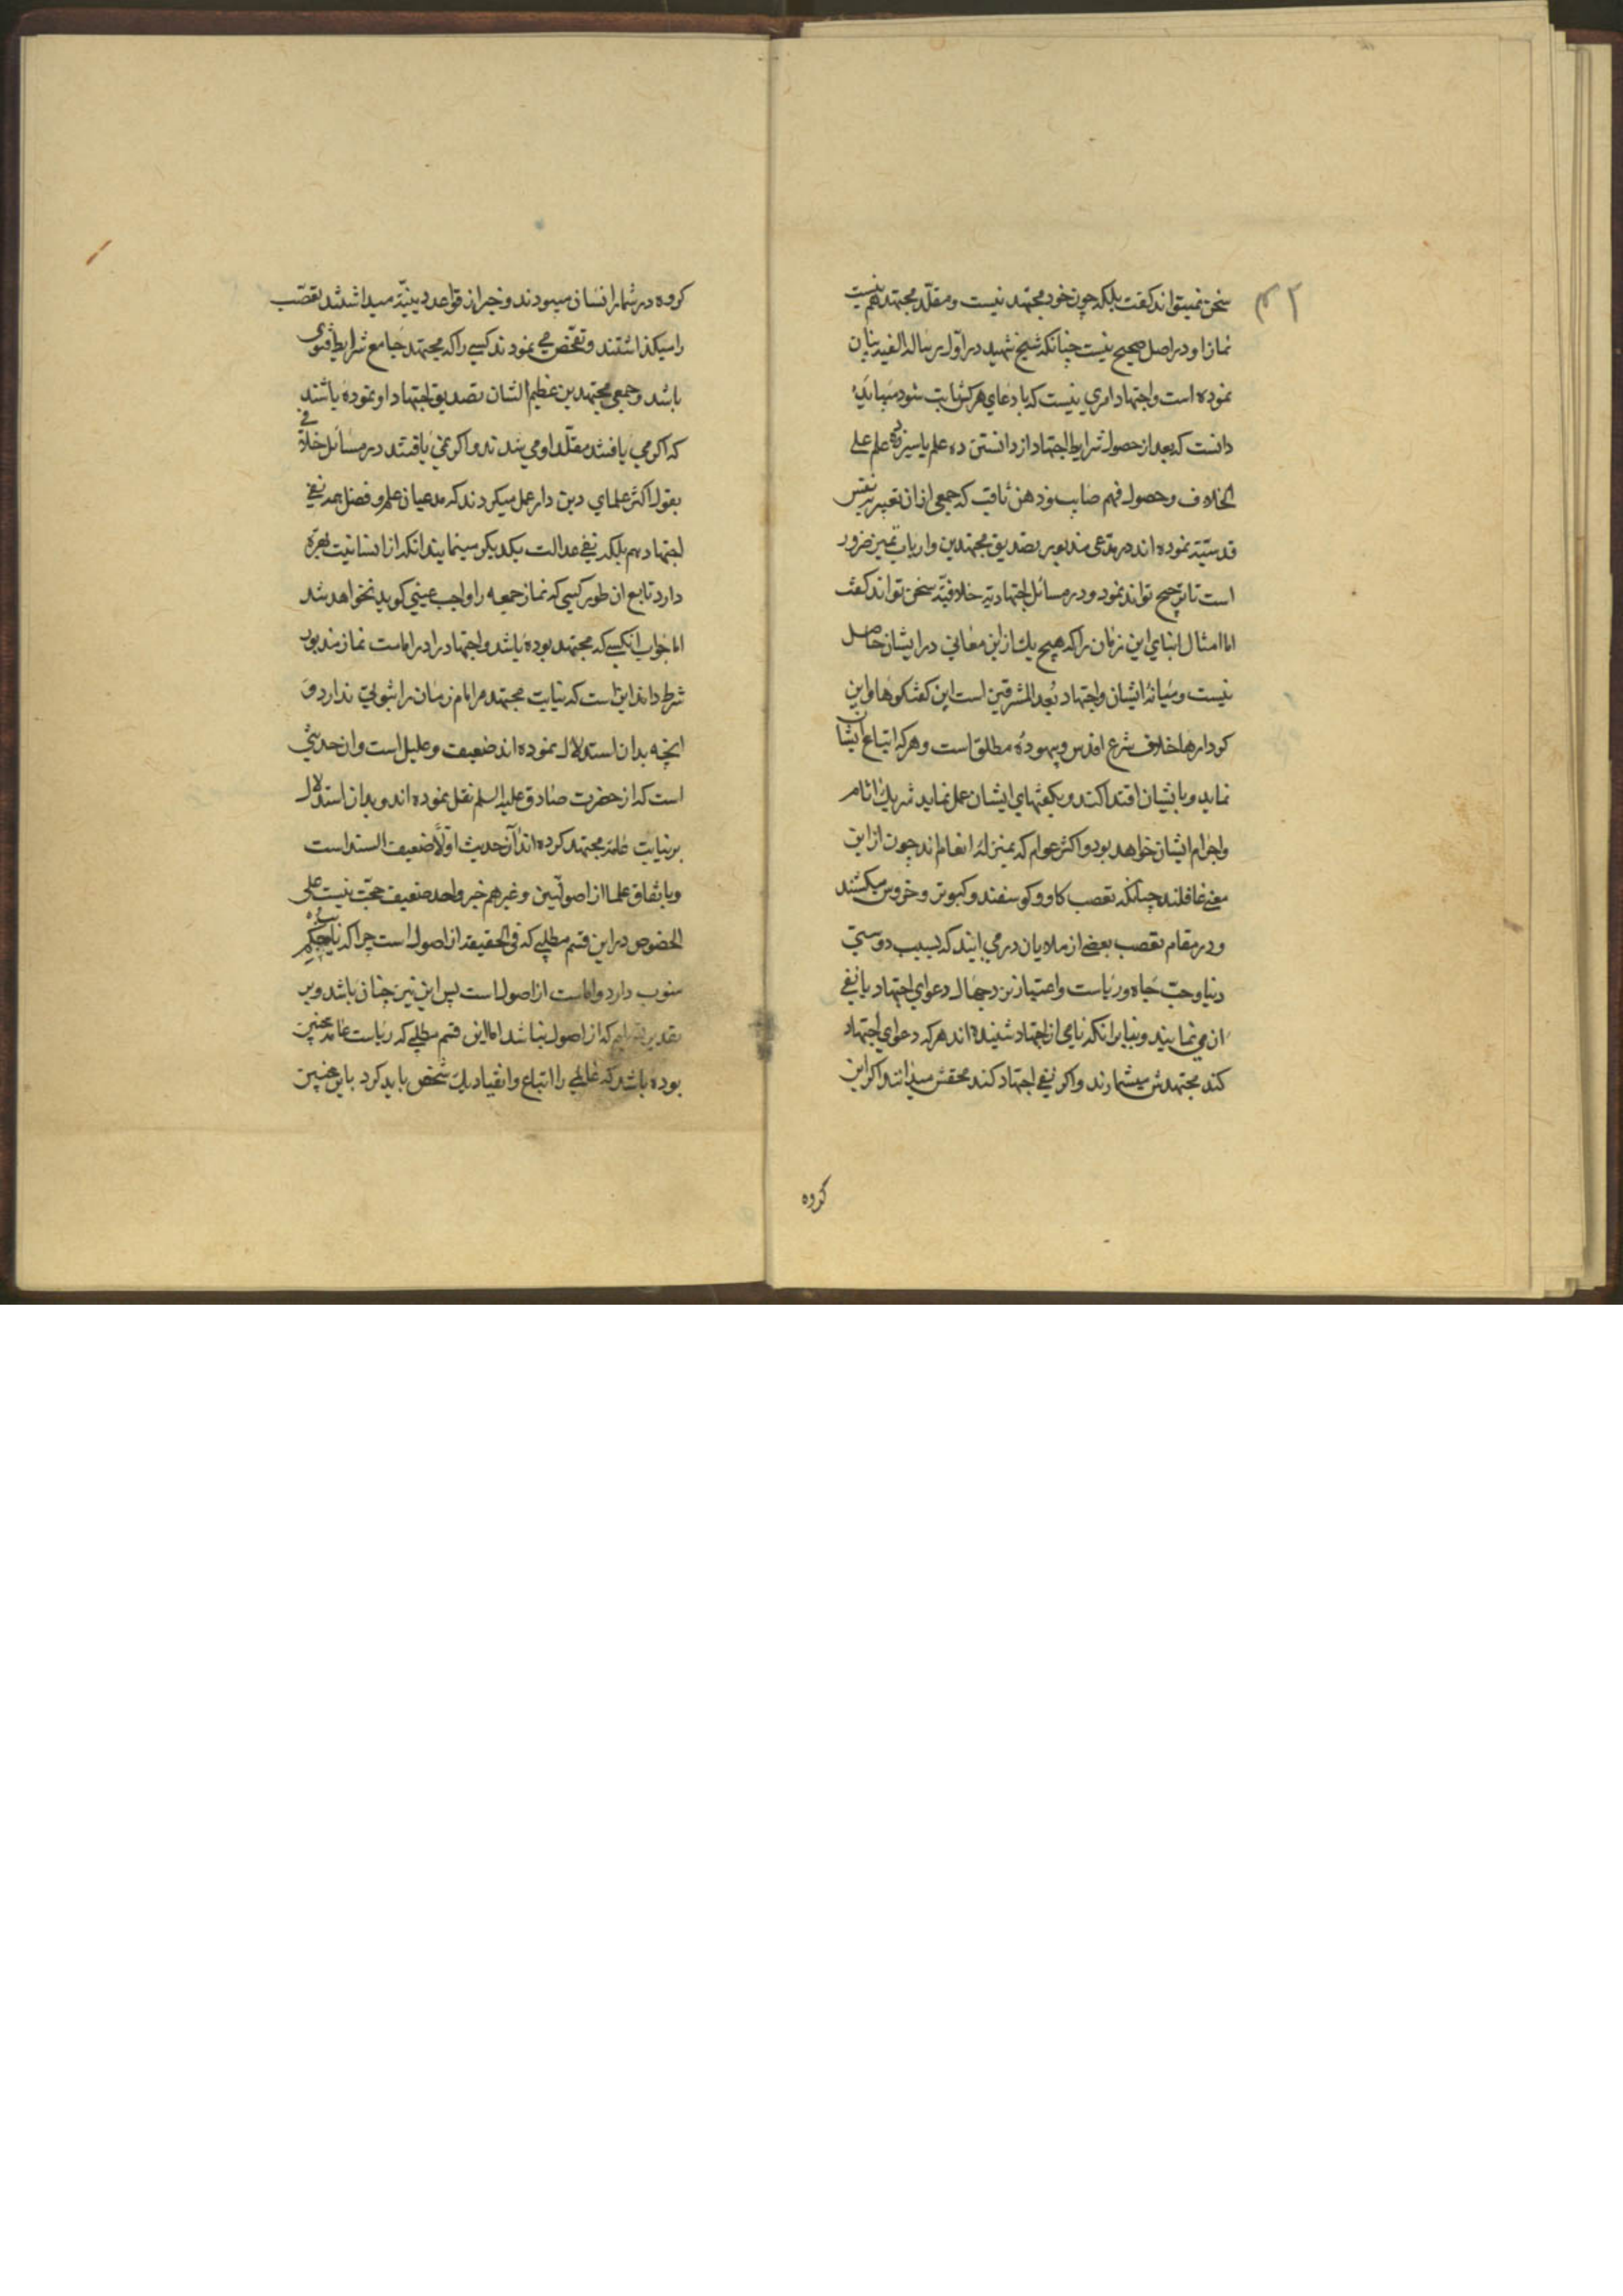 سخن نمیتواند کفت بلکه چون خود مجتهد نیست و مقلّد مجتهد هم نیست
نماز او در اصل صحیح نیست چنانکه شیخ شهید در اوّل رساله الفیه بیان
نموده است و اجتهاد امری نیست که بادعای هرکس ثابت شود میباید
دانست که بعد از حصول شرایط اجتهاد از دانستن ده علم یا سیزده علم علی
الخلاف و حصول فهم صایب و ذهن ثاقب که جمعی از ان تعبیر بنفس
قدسیّه نموده اند در مدّعی مذبور بصدیق مجتهدین و ارباب تمیز ضرور
است تا ترجیح تواند نمود و در مسائل اجتهادیّه خلافیّه سخن تواند کفت
اما امثال ابنای این زمان را که هیچ یك از این معانی در ایشان حاصل
نیست و میانه ایشان و اجتهاد بُعد المشرقین است این کفتکوها و این
کردارها خلاف شرع اقدس و بیهوده مطلق است و هرکه اتباع ایشان
نماید و بایشان اقتدا کند و بکفتهای ایشان عمل نماید شریك اثام
و اجرام ایشان خواهد بود و اکثر عوام که بمنزله انعام اند چون از این
معنی غافلند چنانکه تعصب کاو و کوسفند و کبوتر و خروس میکشند
و در مقام تعصب بعضی از ملایان در می ایند که بسبب دوستی
دنیا و حبّ جاه و ریاست و اعتیاز نزد جهال دعوای اجتهاد یا نفی
ان می نمایند و بنابر انکه نامی از اجتهاد شنیده اند هرکه دعوای اجتهاد
کند مجتهدش میشمارند و اکر نفی اجتهاد کند محقش میدانند اکر این
کروه
کروه در شمار انسان میبودند و خبر از قواعد دینیّه میداشتند تعصّب
را میکذاشتند و تفحّص می نمودند کسی را که مجتهد جامع شرایط فتوی
باشد و جمعی مجتهدین عظیم الشان تصدیق اجتهاد او نموده باشند
که اکر می یافتند مقلّد او می شدند و اکر نمی یافتند در مسائل خلافی
بقول اکثر علمای دین دار عمل میکردند که مدعیان علم و فضل همه نفی
اجتهاد هم بلکه نفی عدالت یکدیکر مینمایند انکه از انسانیت بهره
دارد تابع ان طور کسی که نماز جمعه را واجب عینی کوید نخواهد شد
اما جواب انکسی که مجتهد بوده باشد و اجتهاد را در امامت نماز مذبور
شرط داند این است که نیابت مجتهد مر امام زمان را ثبوتی ندارد و
انچه بدان استدلال نموده اند ضعیف و علیل است و ان حدیثی
است که از حضرت صادق علیه السلم نقل نموده اند و بدان استدلال
بر نیابت عامه مجتهد کرده اند آن حدیث اوّلاً ضعیف السند است
و باتفاق علما از اصولیین و غیرهم خبر واحد ضعیف حجّت نیست علی
الخصوص در این قسم مطلبی که فی الحقیقه از اصول است چرا که نایب حکم
منوب دارد و امامت از اصول است پس این نیز چنان باشد و بر
تقدیر تسلیم که از اصول نباشد اما این قسم مطلبی که ریاست عامه چنین
بوده باشد که عالمی را اتباع و انقیاد یك شخص باید کرد باین چنین